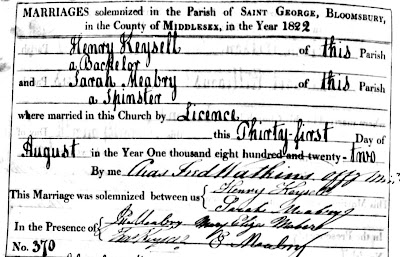 MARRIAGES solemnized in the Parish of SAINT GEORGE, BLOOMSBURY,
in the County of MIDDLESEX, in the Year 1822
Henry Keysell of this Parish
a Bachelor
and Sarah Meabry of this Parish
a Spinster
where married in this Church by Licence
this Thirty-first Day of
August in the Year One thousand eight hundred and twenty-two
By me Watkins
This Marriage was solemnized between us Henry Keysell
Sarah Meabry
In the Presence of Meabry
Meabry
No. 370